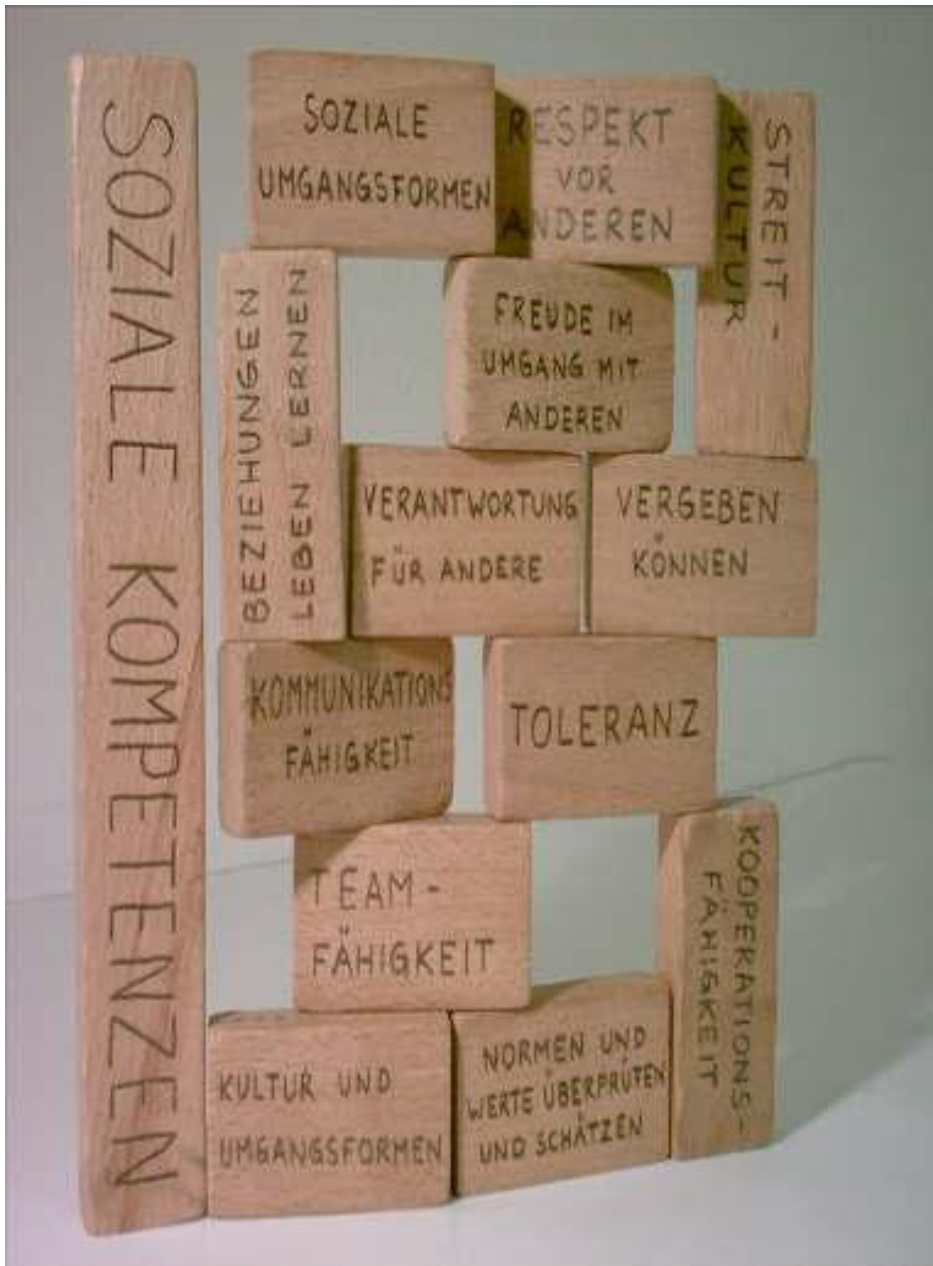 SOZIALE KOMPETENZEN
SOZIALE
UMGANGSFORMEN
RESPEKT
VOR
ANDEREN
STREIT-
KULTUR
BEZIEHUNGEN
LEBEN LERNEN
FREUDE IM
UMGANG MIT
ANDEREN
VERANTWORTUNG
FÜR ANDERE
VERGEBEN
KÖNNEN
KOMMUNIKATIONS
FÄHIGKEIT
TOLERANZ
TEAM-
FÄHIGKEIT
KOOPERATIONS-
FÄHIGKEIT
KULTUR UND
UMGANGSFORMEN
NORMEN UND
WERTE ÜBERPRÜFEN
UND SCHÄTZEN